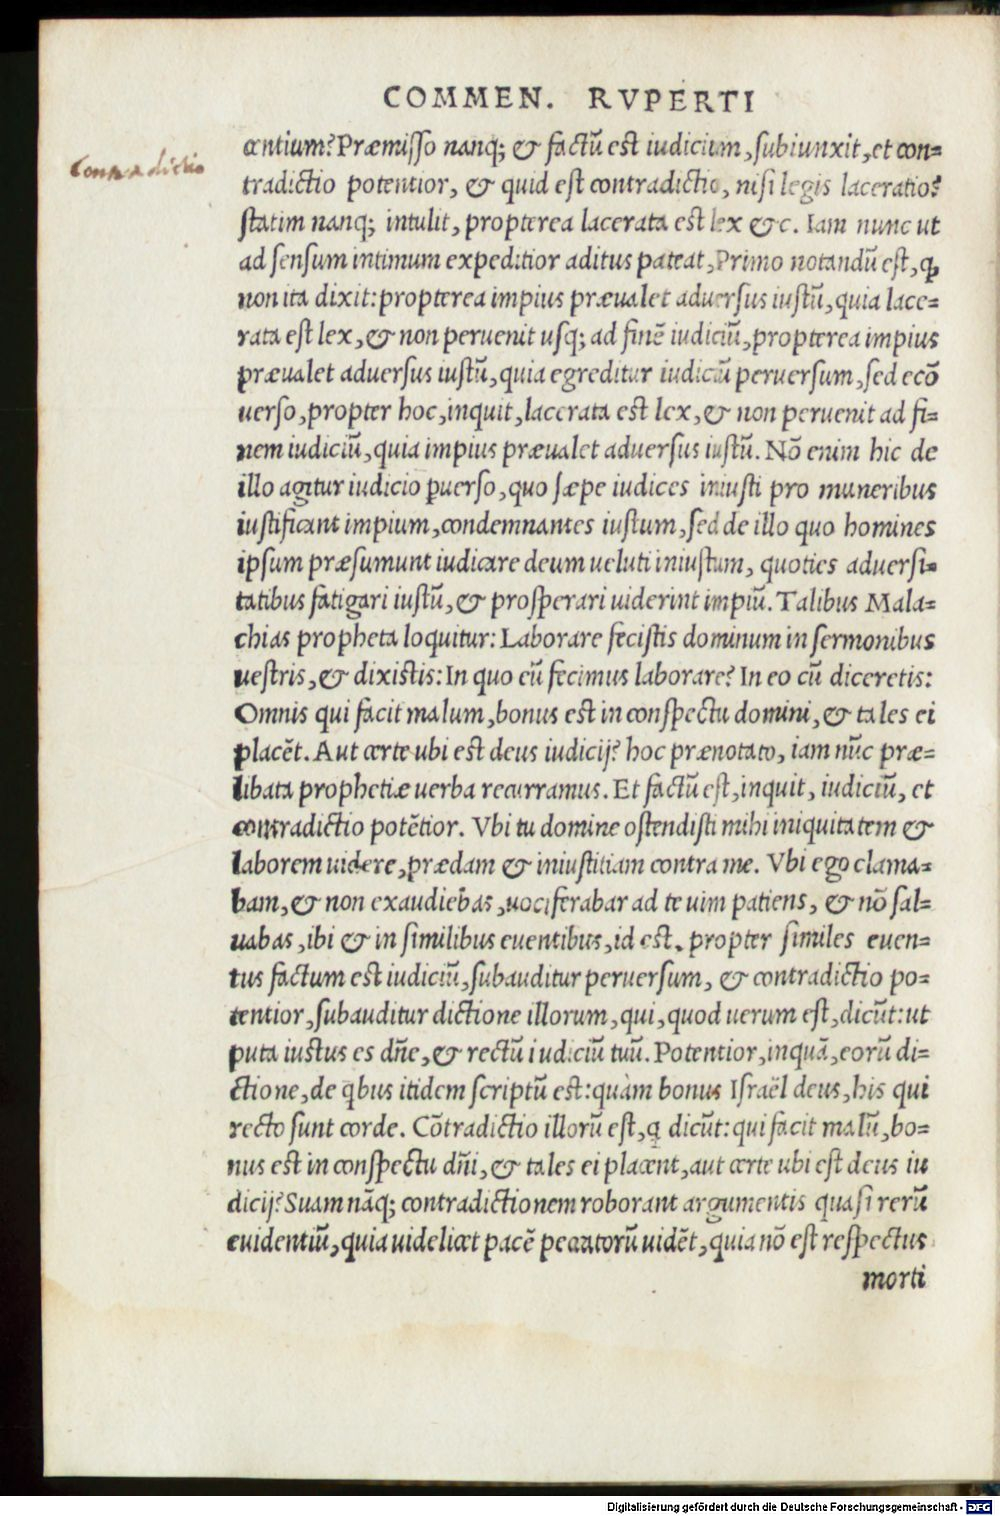 COMMEN. RVPERTI
Contradictio
centium? Præmisso nanq; & factū est iudicium, subiunxit, et con=
tradictio potentior, & quid est contradictio, nisi legis laceratio?
statim nanq; intulit, propterea lacerata est lex &c. Iam nunc ut
ad sensum intimum expeditior aditus pateat, Primo notandū est, ꝙ
non ita dixit: propterea impius præualet aduersus iustū, quia lace=
rata est lex, & non peruenit usq; ad finē iudiciū, propterea impius
præualet aduersus iustū, quia egreditur iudiciū peruersum, sed ecō
uerso, propter hoc, inquit, lacerata est lex, & non peruenit ad fi=
nem iudiciū, quia impius præualet aduersus iustū. Nō enim hic de
illo agitur iudicio ꝑuerso, quo sæpe iudices iniusti pro muneribus
iustificant impium, condemnantes iustum, sed de illo quo homines
ipsum præsumunt iudicare deum ueluti iniustum, quoties aduersi=
tatibus fatigari iustū, & prosperari uiderint impiū. Talibus Mala=
chias propheta loquitur: Laborare fecistis dominum in sermonibus
uestris, & dixistis: In quo eū fecimus laborare? In eo cū diceretis:
Omnis qui facit malum, bonus est in conspectu domini, & tales ei
placēt. Aut certe ubi est deus iudicij? hoc prænotato, iam nūc præ=
libata prophetiæ uerba recurramus. Et factū est, inquit, iudiciū, et
contradictio potētior. Vbi tu domine ostendisti mihi iniquitatem &
laborem uidere, prædam & iniustitiam contra me. Vbi ego clama=
bam, & non exaudiebas, uociferabar ad te uim patiens, & nō sal=
uabas, ibi & in similibus euentibus, id est, propter similes euen=
tus factum est iudiciū, subauditur peruersum, & contradictio po=
tentior, subauditur dictione illorum, qui, quod uerum est, dicūt: ut
puta iustus es dñe, & rectū iudiciū tuū. Potentior, inquā, eorū di=
ctione, de qbus itidem scriptū est: quàm bonus Israël deus, his qui
recto sunt corde. Cōtradictio illorū est, q dicūt: qui facit malū, bo=
nus est in conspectu dñi, & tales ei placent, aut certe ubi est deus iu
dicij? Suam nāq; contradictionem roborant argumentis quasi rerū
euidentiū, quia uidelicet pacē peccatorū uidēt, quia nō est respectus
morti
Digitalisierung gefördert durch die Deutsche Forschungsgemeinschaft - DFG